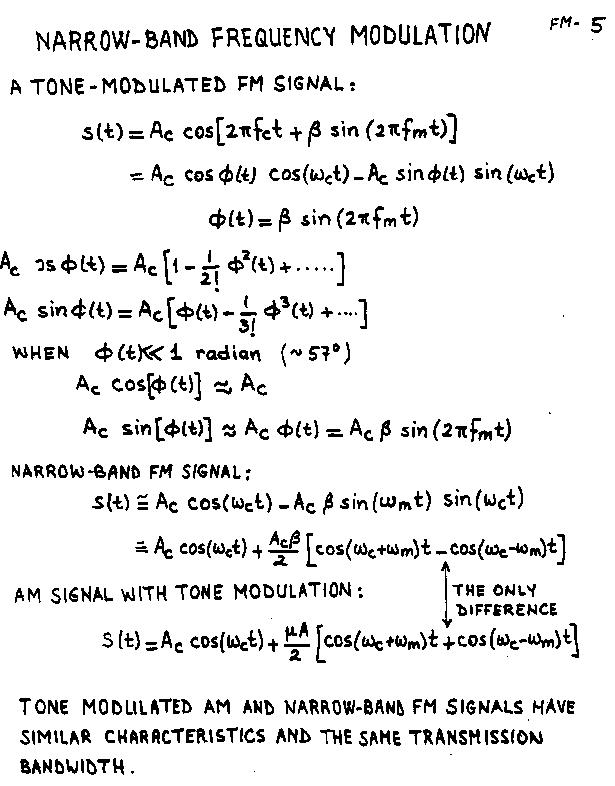 NARROW-BAND FREQUENCY MODULATION FM- 5
A TONE-MODULATED FM SIGNAL:
s(t) = Ac cos[2πfct + β sin (2πfmt)]
= Ac cos ϕ(t) cos(ωct) – Ac sinϕ(t) sin (ωct)
ϕ(t) = β sin (2πfmt)
Ac os ϕ(t) = Ac [1 - 1/2! ϕ²(t) + .....]
Ac sin ϕ(t) = Ac [ϕ(t) - 1/3! ϕ³(t) + ....]
WHEN ϕ(t) ≪ 1 radian (~57°)
Ac cos[ϕ(t)] ≈ Ac
Ac sin[ϕ(t)] ≈ Ac ϕ(t) = Ac β sin (2πfmt)
NARROW-BAND FM SIGNAL:
s(t) ≅ Ac cos(ωct) – Ac β sin(ωmt) sin(ωct)
= Ac cos(ωct) + Acβ/2 [cos(ωc+ωm)t – cos(ωc-ωm)t]
AM SIGNAL WITH TONE MODULATION: THE ONLY
DIFFERENCE
S(t) = Ac cos(ωct) + μA/2 [cos(ωc+ωm)t + cos(ωc-ωm)t]
TONE MODULATED AM AND NARROW-BAND FM SIGNALS HAVE
SIMILAR CHARACTERISTICS AND THE SAME TRANSMISSION
BANDWIDTH.